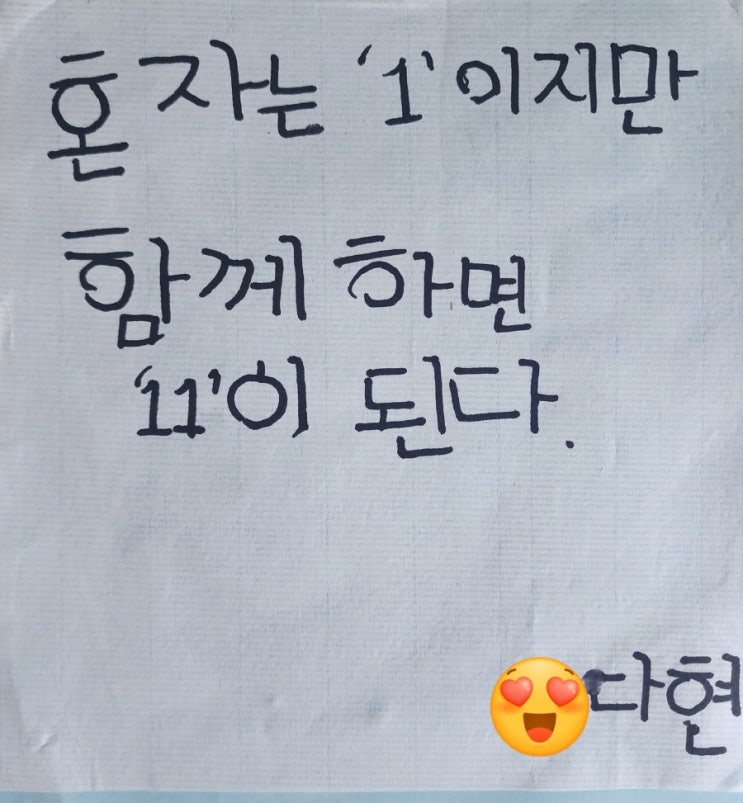 혼자는 '1'이지만
함께 하면
'11'이 된다.
다현